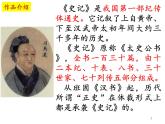 作品介绍
《史记》是我国第一部纪传
体通史。它叙了自黄帝，
下至汉武帝太和年间大约三
千多年的历史。
《史记》(本名《太史公
书》)共一百三十篇，包括
十二本纪、十表、八书、三
十世家、七十列传，五十二
万多字。从班固的《汉书》
起，直到《明史》，历代的
所谓“正史”在体例上都
是承袭《史记》的。